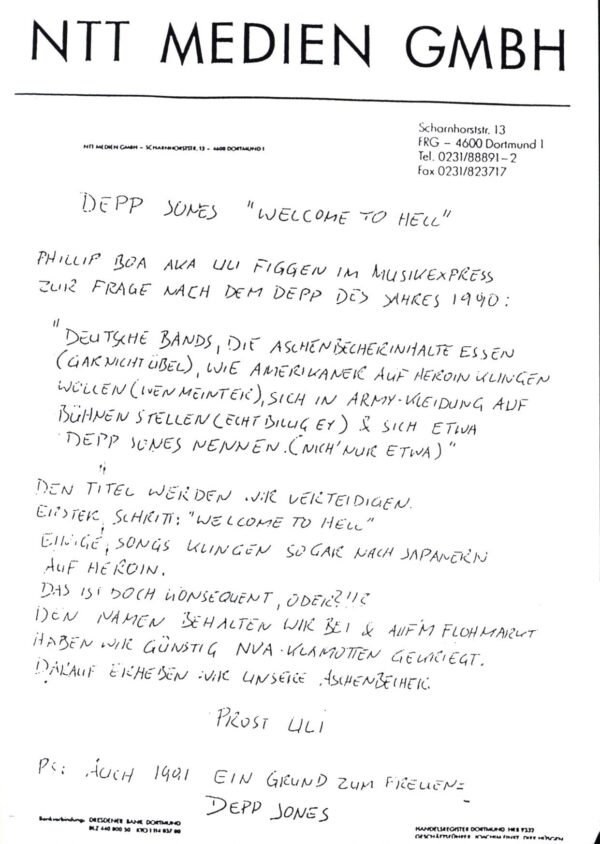 NTT MEDIEN GMBH
Scharnhorststr. 13
FRG – 4600 Dortmund 1
Tel. 0231/88891–2
Fax 0231/823717
NTT MEDIEN GMBH – SCHARNHORSTSTR. 13 – 4600 DORTMUND 1
DEPP JONES "WELCOME TO HELL"
PHILLIP BOA AKA ULI FIGGEN IM MUSIKEXPRESS
ZUR FRAGE NACH DEM DEPP DES JAHRES 1990:
"DEUTSCHE BANDS, DIE ASCHENBECHERINHALTE ESSEN
(GAR NICHT ÜBEL), WIE AMERIKANER AUF HEROIN KLINGEN
WOLLEN (WEN MEINT ER), SICH IN ARMY-KLEIDUNG AUF
BÜHNEN STELLEN (ECHT BILLIG EY) & SICH ETWA
DEPP JONES NENNEN. (NICH' NUR ETWA)"
DEN TITEL WERDEN WIR VERTEIDIGEN.
ERSTER SCHRITT: "WELCOME TO HELL"
EINIGE SONGS KLINGEN SOGAR NACH JAPANERN
AUF HEROIN.
DAS IST DOCH KONSEQUENT, ODER?!!?
DEN NAMEN BEHALTEN WIR BEI & AUF'M FLOHMARKT
HABEN WIR GÜNSTIG NVA-KLAMOTTEN GEKRIEGT.
DARAUF ERHEBEN WIR UNSERE ASCHENBECHER.
PROST ULI
PS: AUCH 1991 EIN GRUND ZUM FREUEN:
DEPP JONES
Bankverbindung: DRESDENER BANK DORTMUND
BLZ 440 800 50
HANDELSREGISTER DORTMUND HRB 9333
GESCHÄFTSFÜHRER